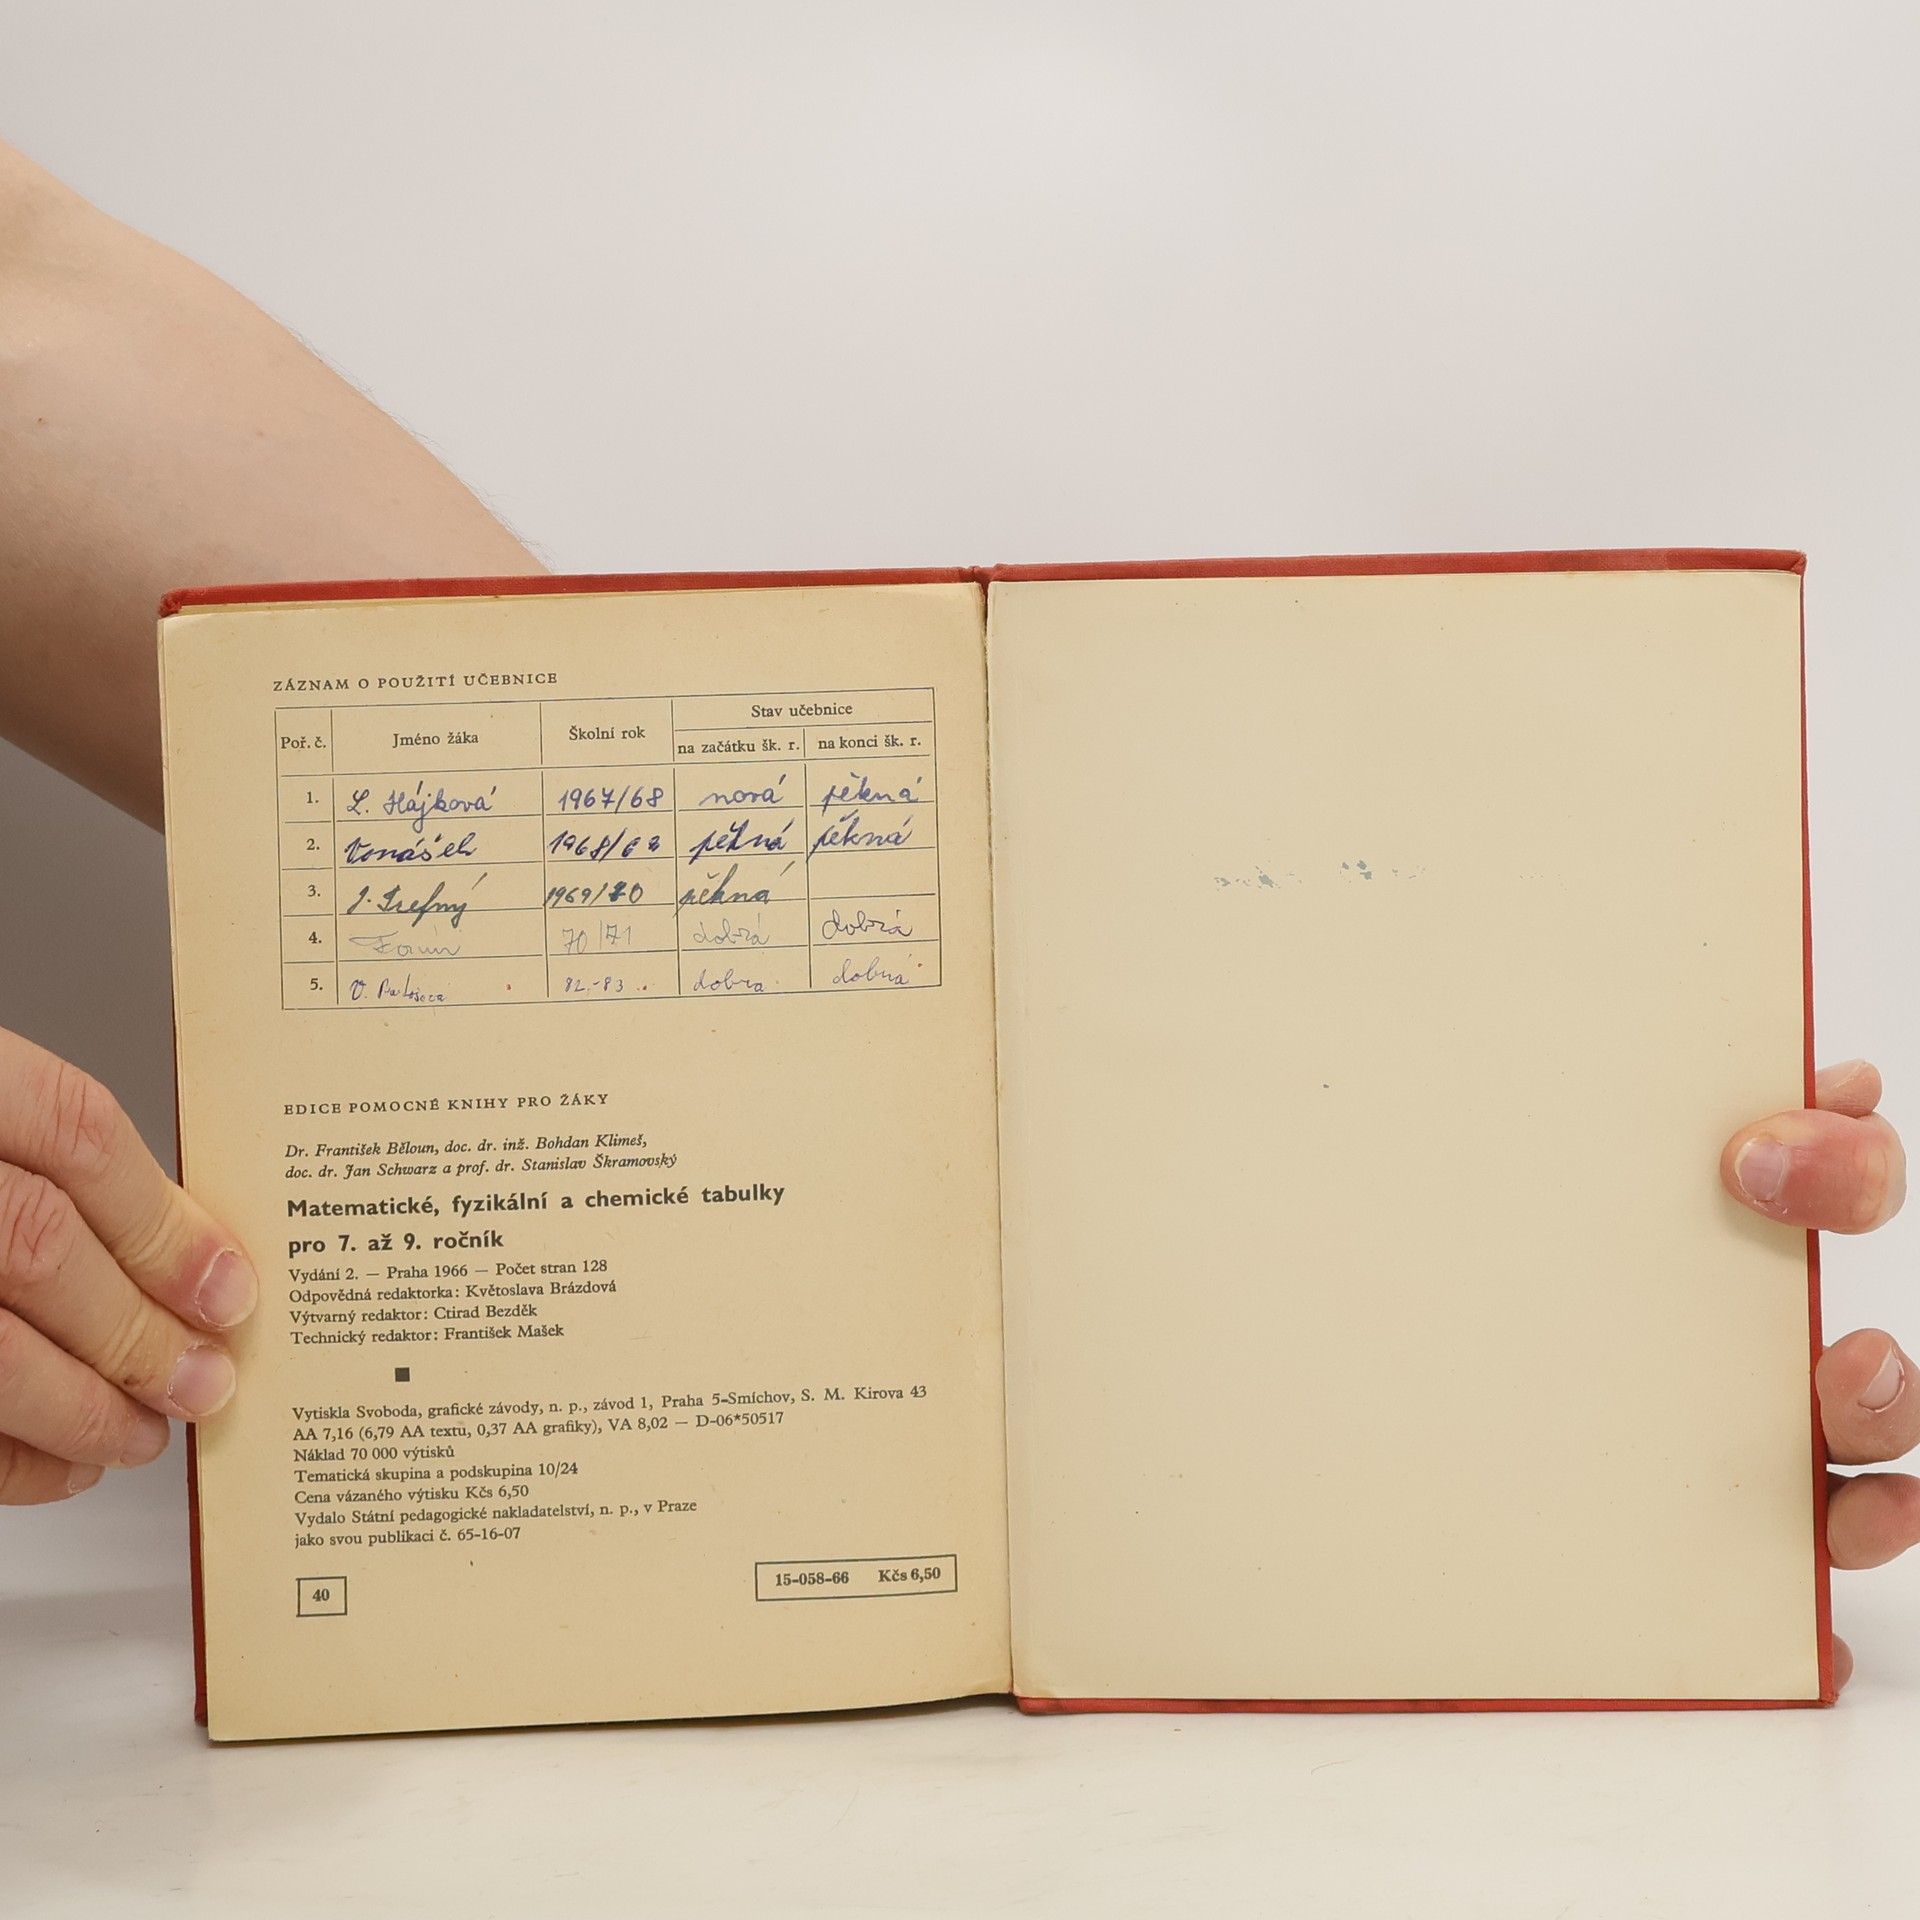 ZÁZNAM O POUŽITÍ UČEBNICE
Poř. č. Jméno žáka Školní rok Stav učebnice
na začátku šk. r. na konci šk. r.
1. L. Hájková 1967/68 nová pěkná
2. Vonášek 1968/69 pěkná pěkná
3. J. Trefný 1969/70 pěkná
4. 70/71 dobrá dobrá
5. V. 82.-83 dobra dobrá
EDICE POMOCNÉ KNIHY PRO ŽÁKY
Dr. František Běloun, doc. dr. inž. Bohdan Klimeš,
doc. dr. Jan Schwarz a prof. dr. Stanislav Škramovský
Matematické, fyzikální a chemické tabulky
pro 7. až 9. ročník
Vydání 2. — Praha 1966 — Počet stran 128
Odpovědná redaktorka: Květoslava Brázdová
Výtvarný redaktor: Ctirad Bezděk
Technický redaktor: František Mašek
Vytiskla Svoboda, grafické závody, n. p., závod 1, Praha 5-Smíchov, S. M. Kirova 43
AA 7,16 (6,79 AA textu, 0,37 AA grafiky), VA 8,02 — D-06*50517
Náklad 70 000 výtisků
Tematická skupina a podskupina 10/24
Cena vázaného výtisku Kčs 6,50
Vydalo Státní pedagogické nakladatelství, n. p., v Praze
jako svou publikaci č. 65-16-07
40
15-058-66 Kčs 6,50